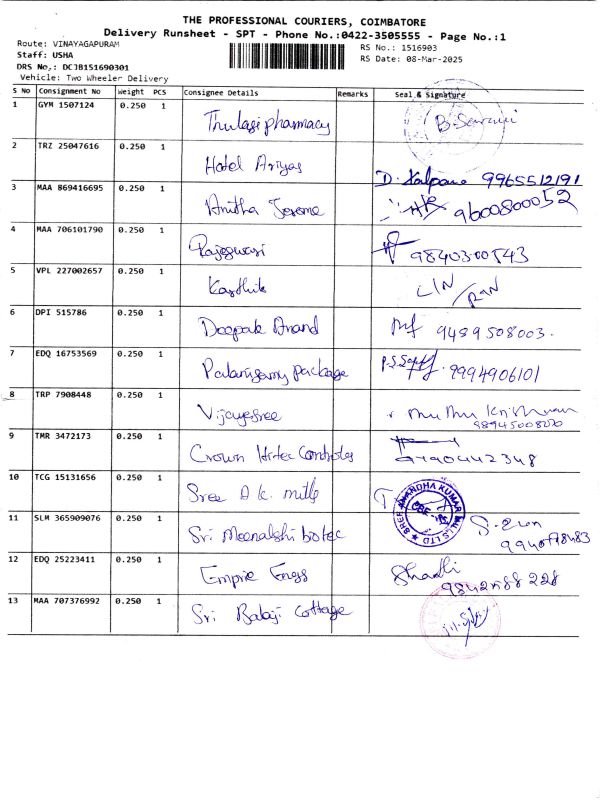 THE PROFESSIONAL COURIERS, COIMBATORE
Delivery Runsheet - SPT - Phone No.:0422-3505555 - Page No.:1
Route: VINAYAGAPURAM
Staff: USHA
DRS No,: DCJB151690301
Vehicle: Two Wheeler Delivery
RS No.: 1516903
RS Date: 08-Mar-2025
S No Consignment No Weight PCS Consignee Details Remarks Seal & Signature
1 GYM 1507124 0.250 1 Thulasi pharmacy
2 TRZ 25047616 0.250 1 Hotel Ariyas D. Kalpana 9965512191
3 MAA 869416695 0.250 1 Anitha Jerome 9600800052
4 MAA 706101790 0.250 1 Rajeswari 9840300543
5 VPL 227002657 0.250 1 Karthik
6 DPI 515786 0.250 1 Deepak Anand 9489508003
7 EDQ 16753569 0.250 1 Palanisamy package 9994906101
8 TRP 7908448 0.250 1 Vijayesree
9 TMR 3472173 0.250 1 Crown Hitec
10 TCG 15131656 0.250 1 Sree A.K. mills
11 SLM 365909076 0.250 1 Sri Meenakshi biotec
12 EDQ 25223411 0.250 1 Empire Enggs
13 MAA 707376992 0.250 1 Sri Balaji Cottage